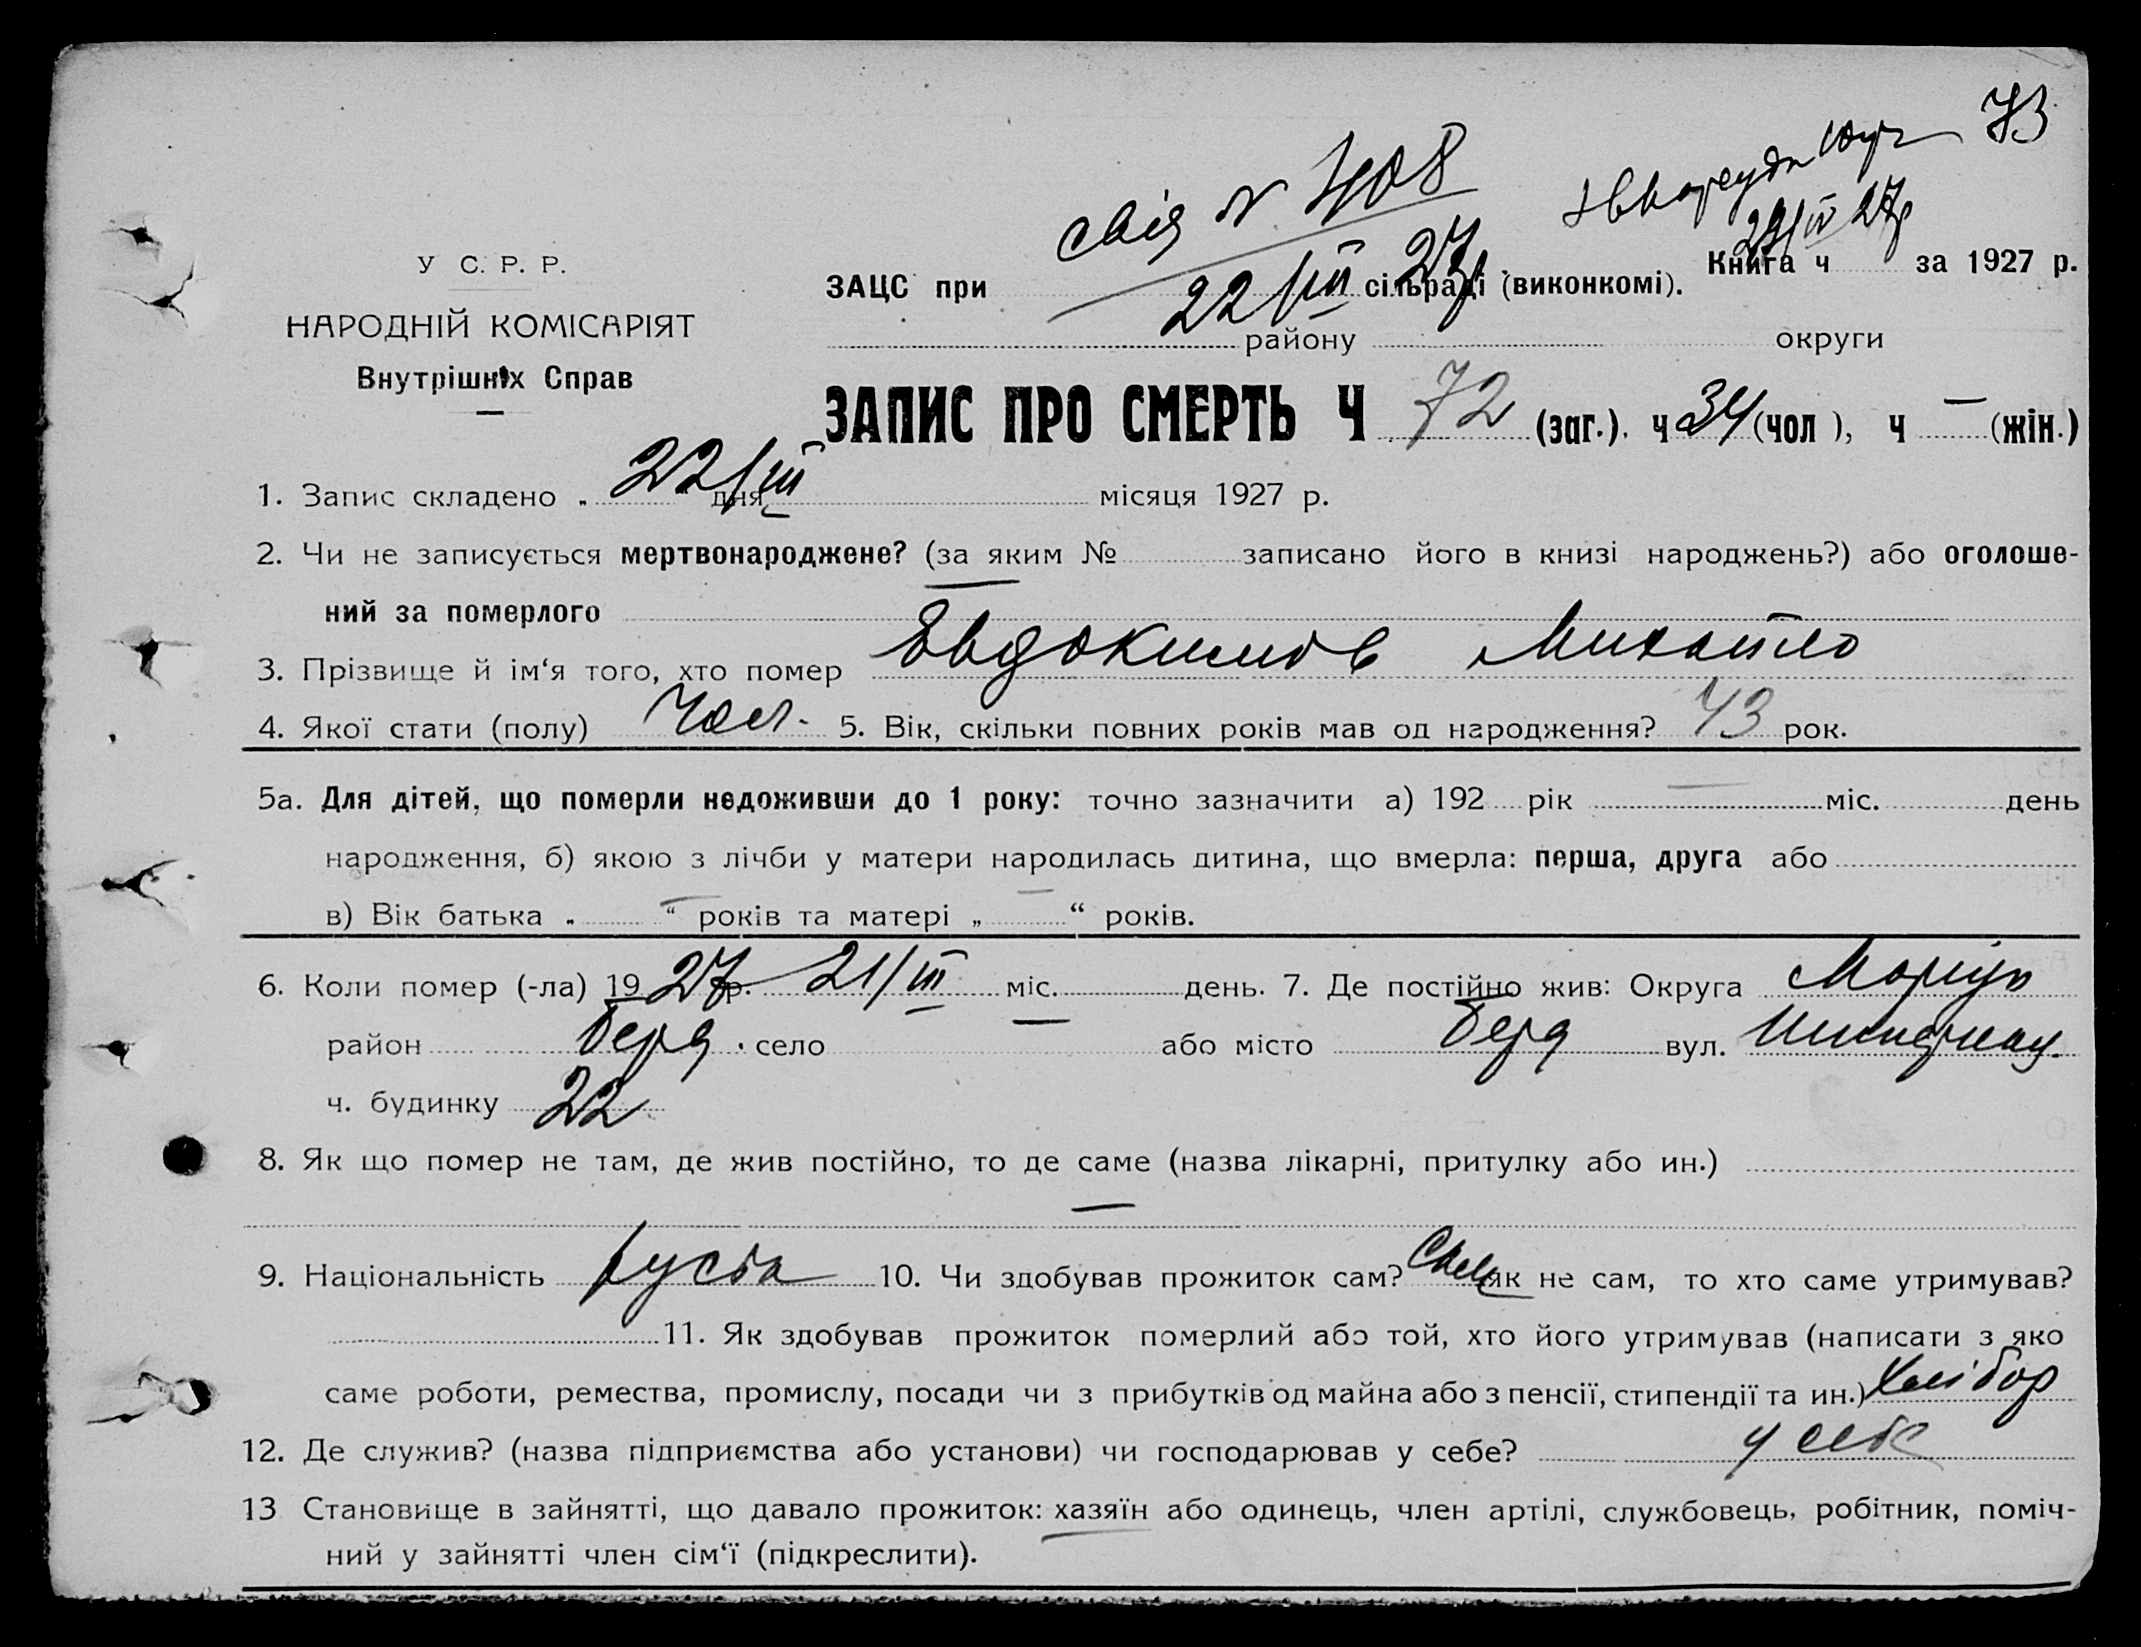 73
свід N 408
22/III 27р.
29/IV 27р
У С. Р. Р.
НАРОДНІЙ КОМІСАРІЯТ
Внутрішніх Справ
Книга ч за 1927 р.
ЗАЦС при сільраді (виконкомі).
району округи
ЗАПИС ПРО СМЕРТЬ Ч 72 (заг.). ч 34 (чол ), ч — (жін.)
1. Запис складено „ 22/III дня місяця 1927 р.
2. Чи не записується мертвонароджене? (за яким № записано його в книзі народжень?) або оголоше-
ний за померлого —
3. Прізвище й ім‘я того, хто помер Євдокимов Михайло
4. Якої стати (полу) Чол. 5. Вік, скільки повних років мав од народження? 43 рок.
5а. Для дітей, що померли недоживши до 1 року: точно зазначити а) 192 рік — міс. день
народження, б) якою з лічби у матери народилась дитина, що вмерла: перша, друга або
в) Вік батька „ — “ років та матері „ — “ років.
6. Коли помер (-ла) 19 27 р. 21/III міс. день. 7. Де постійно жив: Округа Маріуп
район Берд. село — або місто Берд вул.
ч. будинку 22
8. Як що помер не там, де жив постійно, то де саме (назва лікарні, притулку або ин.)
—
9. Національність руська 10. Чи здобував прожиток сам? Сам як не сам, то хто саме утримував?
11. Як здобував прожиток померлий або той, хто його утримував (написати з яко
саме роботи, ремества, промислу, посади чи з прибутків од майна або з пенсії, стипендії та ин.) Хлібор
12. Де служив? (назва підприємства або установи) чи господарював у себе? у себе
13 Становище в зайнятті, що давало прожиток: хазяїн або одинець, член артілі, службовець, робітник, поміч-
ний у зайнятті член сім‘ї (підкреслити).